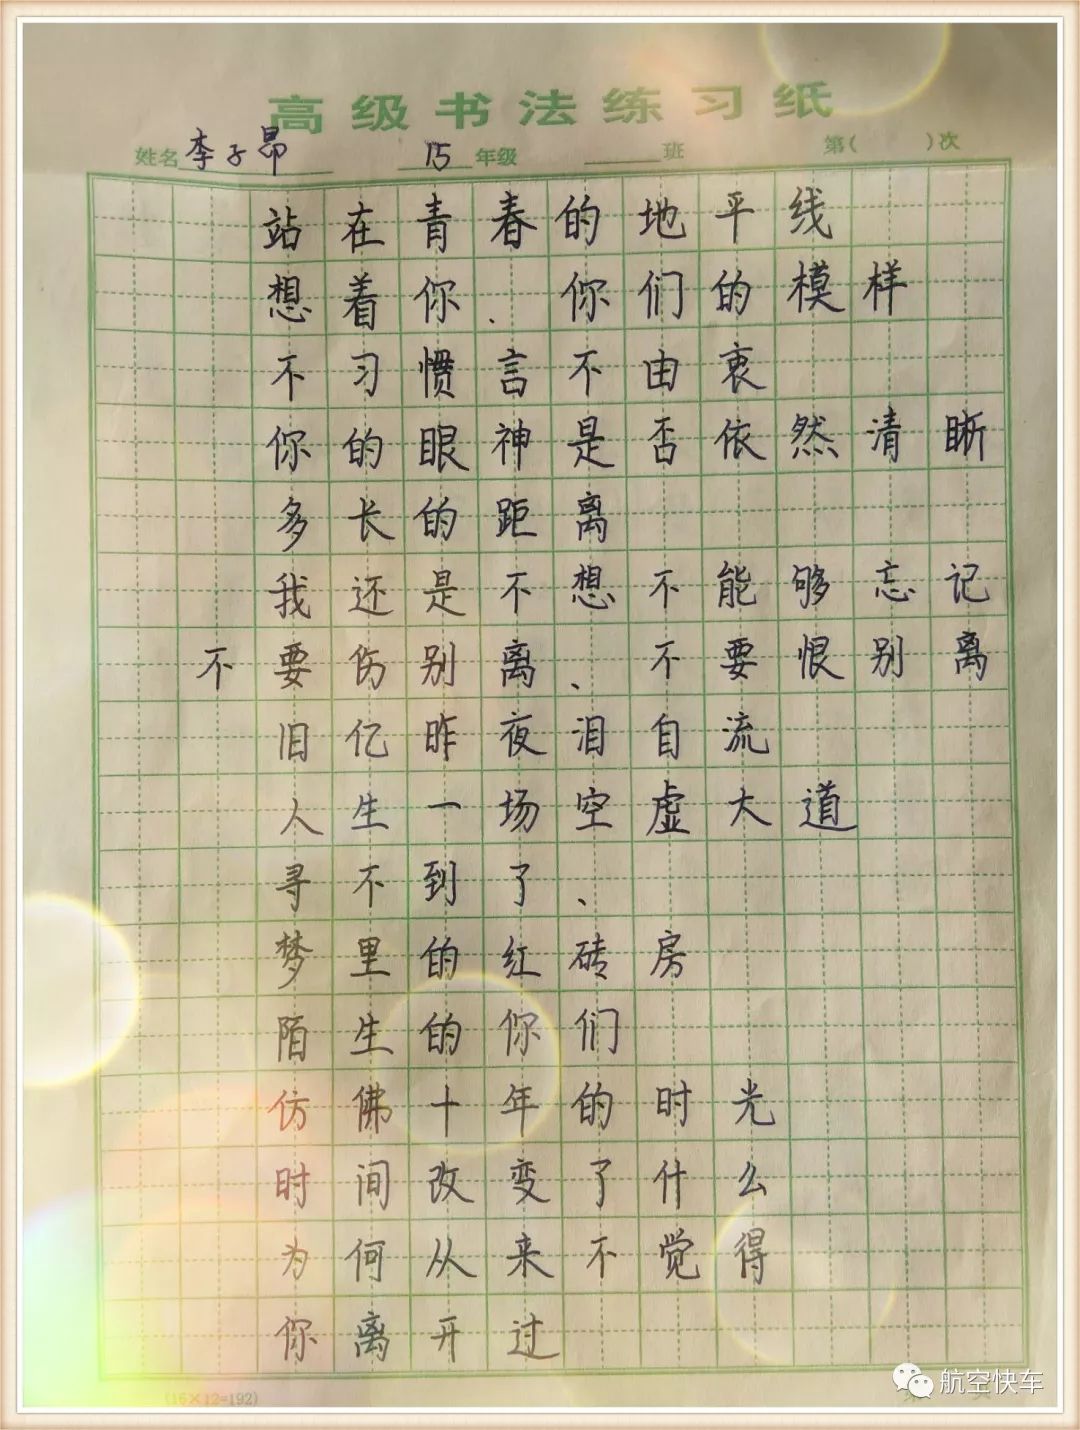 高级书法练习纸
姓名 李子昂 15 年级 班 第( )次
站在青春的地平线
想着你、你们的模样
不习惯言不由衷
你的眼神是否依然清晰
多长的距离
我还是不想不能够忘记
不要伤别离、不要恨别离
旧忆昨夜泪自流
人生一场空虚大道
寻不到了、
梦里的红砖房
陌生的你们
仿佛十年的时光
时间改变了什么
为何从来不觉得
你离开过
(16×12=192)
航空快车